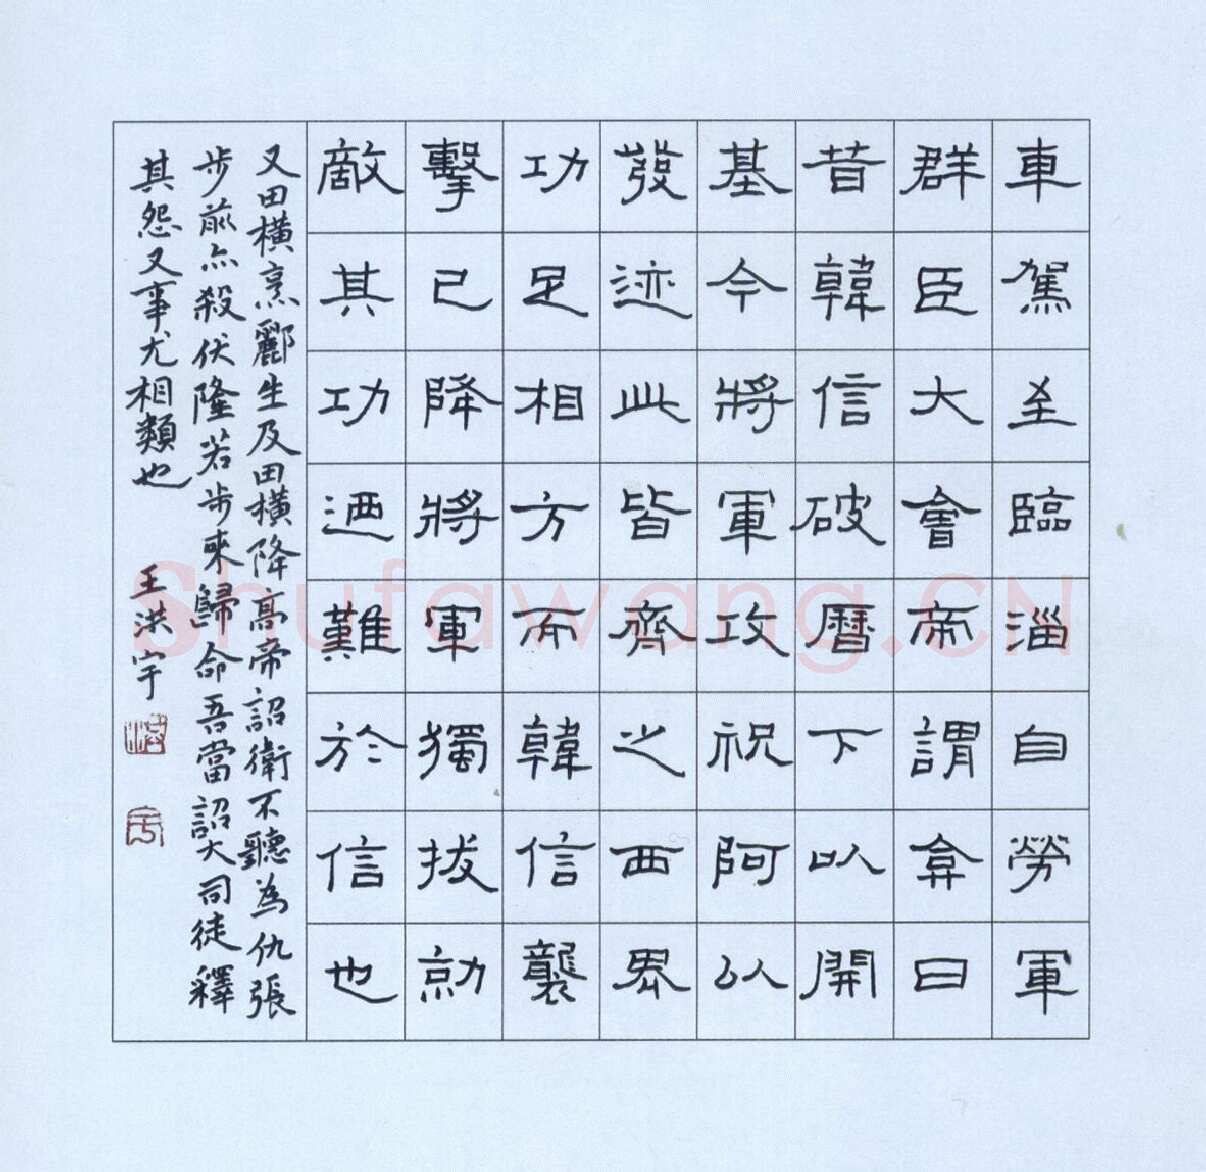 車駕至臨淄自勞軍
群臣大會帝謂弇曰
昔韓信破曆下㕥開
基今將軍攻祝阿以
發迹此皆齊之西界
功足相方而韓信襲
擊已降將軍獨拔勍
敵其功迺難於信也
又田橫烹酈生及田橫降高帝詔衛不聽為仇張
步前亦殺伏隆若步來歸命吾當詔大司徒釋
其怨又事尤相類也
王洪宇
Shufawang.CN